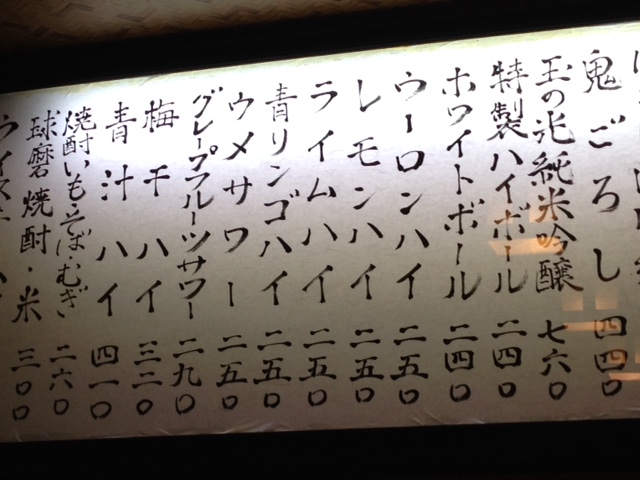 鬼ごろし 四四〇
玉の光純米吟醸 七六〇
特製ハイボール 二四〇
ホワイトボール 二四〇
ウーロンハイ 二五〇
レモンハイ 二五〇
ライムハイ 二五〇
青リンゴハイ 二五〇
ウメサワー 二五〇
グレープフルーツサワー 二九〇
梅干ハイ 三二〇
青汁ハイ 四一〇
焼酎いも・そば・むぎ 二六〇
球磨焼酎・米 三〇〇